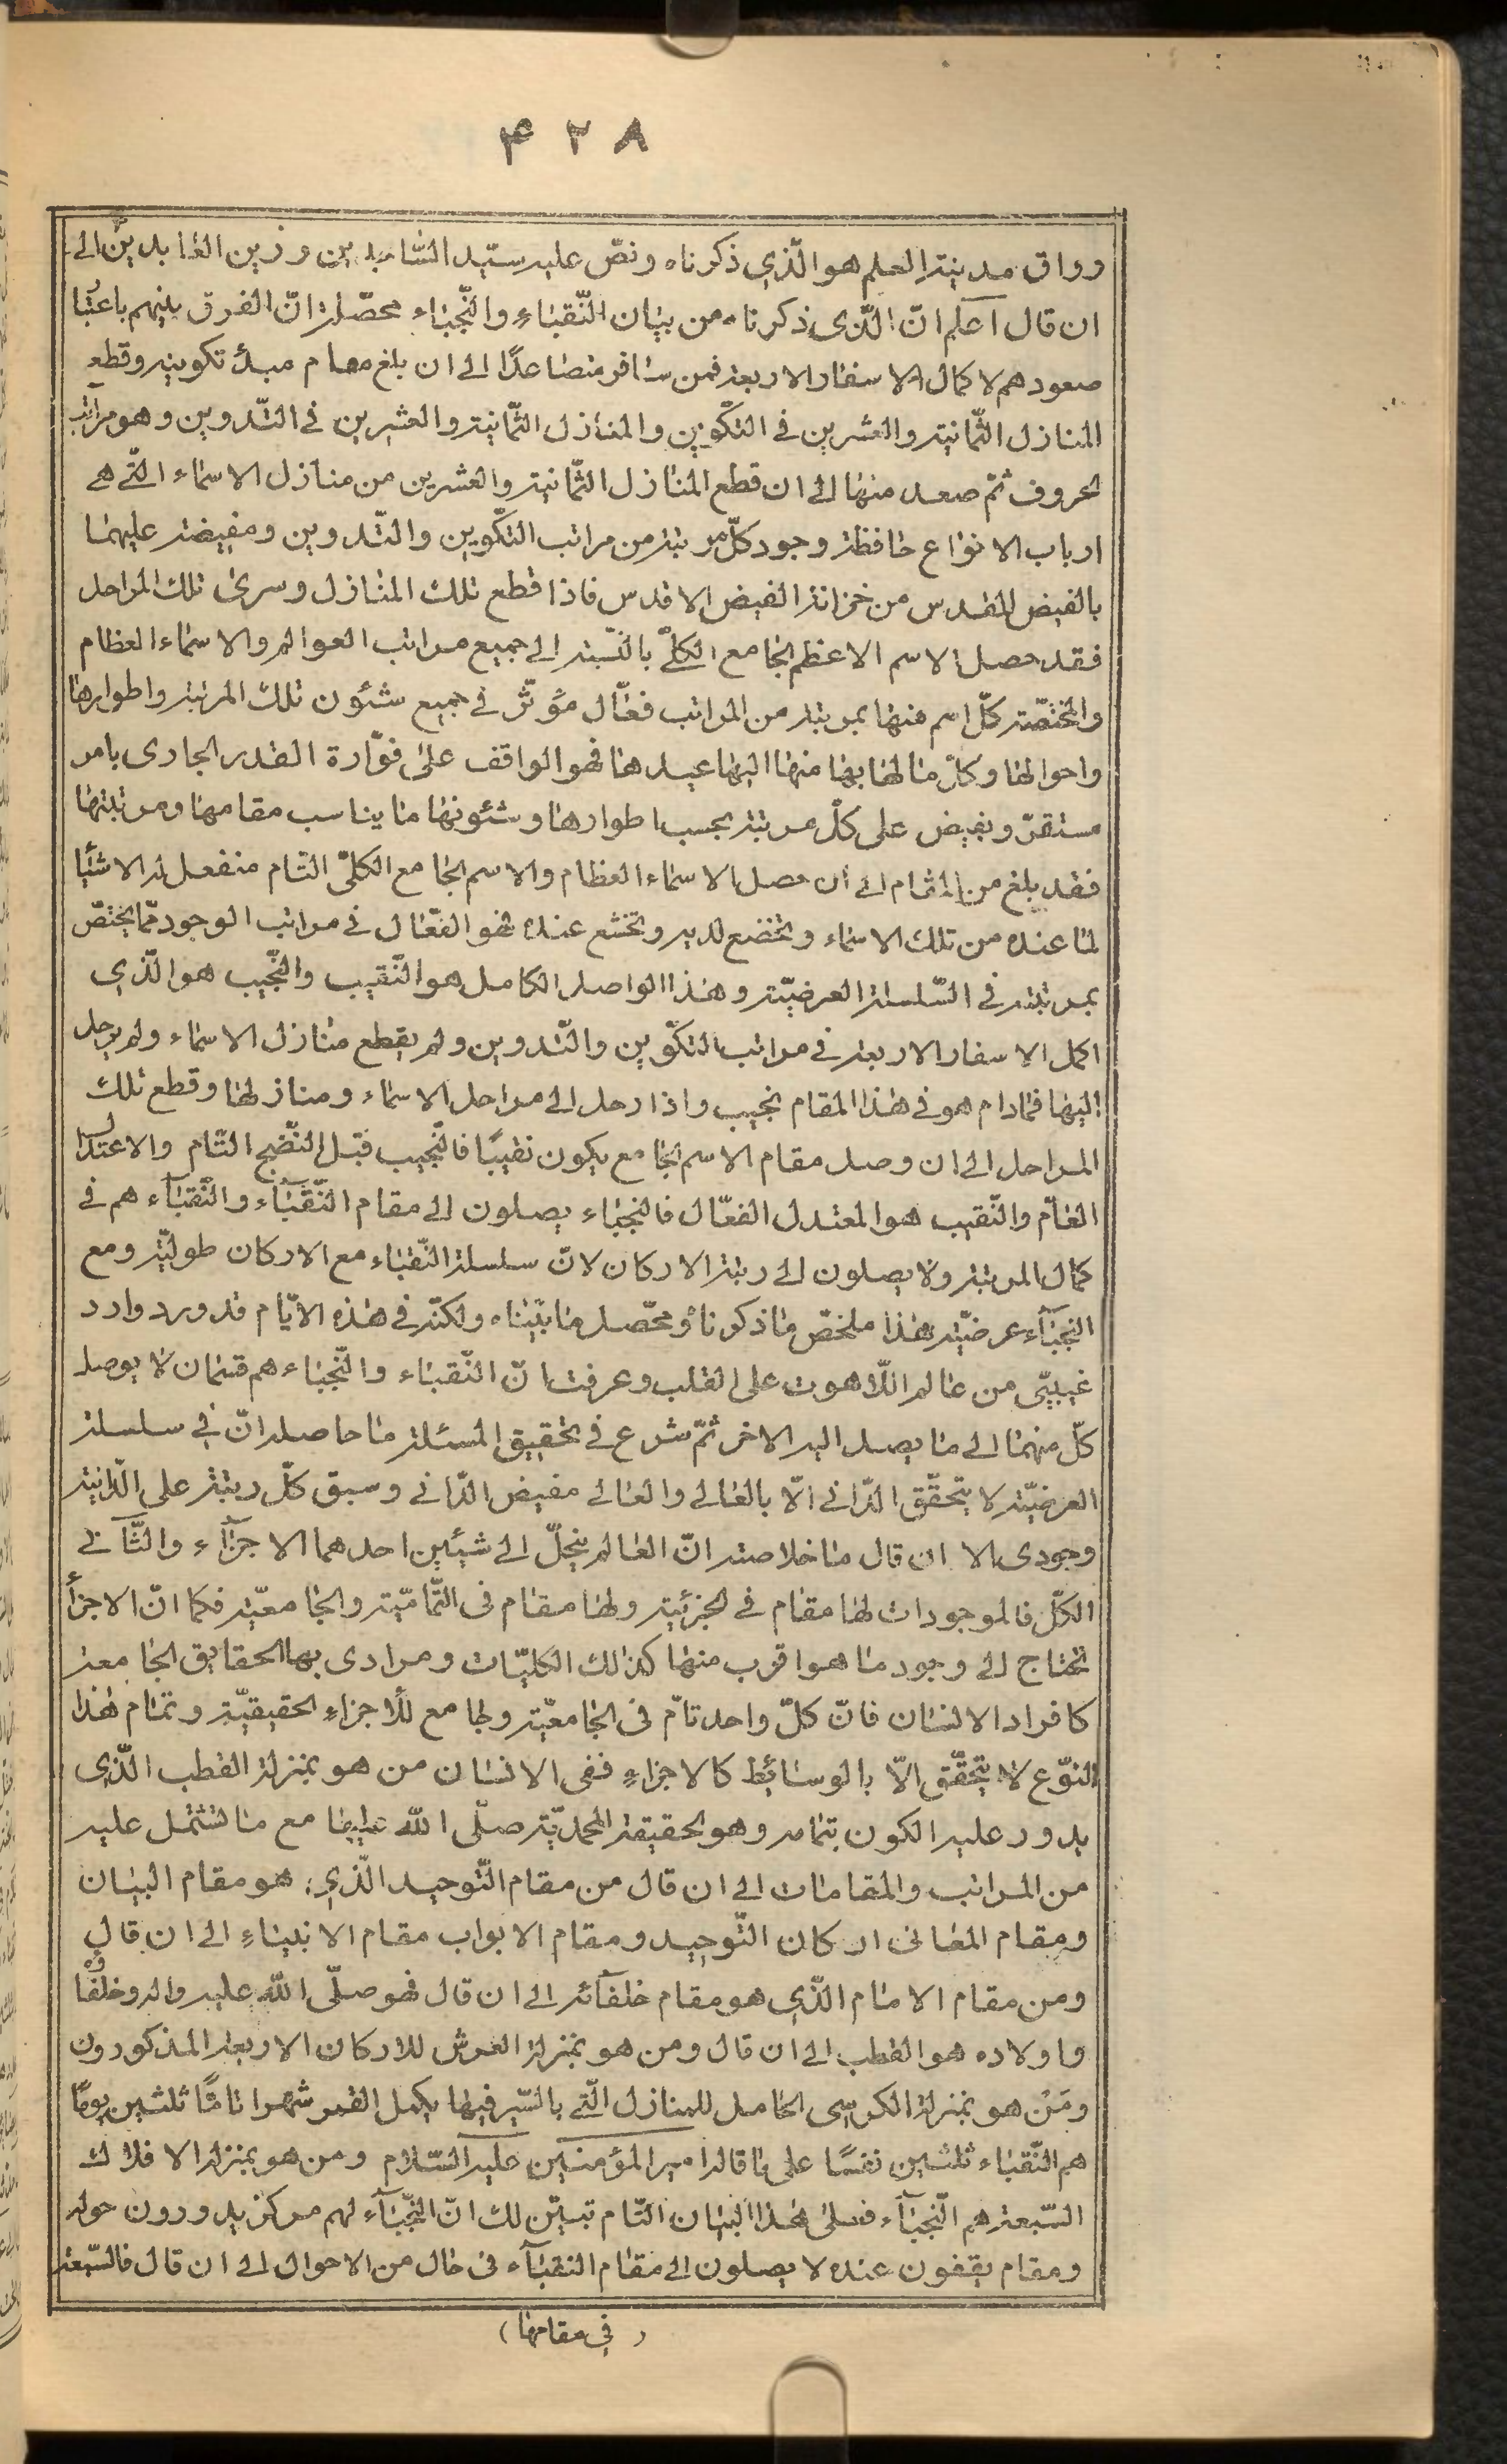 ۴۲۸
ورواق مدينة العلم هو الّذي ذكرناه ونصّ عليه سيّد السّاجدين وزين العابدين الى
ان قال اعلم انّ الّذى ذكرناه من بيان النّقباء والنّجباء محصّله انّ الفرق بينهم باعتبا
صعودهم لاكمال الاسفار الاربعة فمن سافر متصاعدًا الى ان بلغ مقام مبدء تكوينه وقطع
المنازل الثّمانية والعشرين في التكوين والمنازل الثّمانية والعشرين في التّدوين وهو مراتب
الحروف ثمّ صعد منها الى ان قطع المنازل الثّمانية والعشرين من منازل الاسماء الّتي هي
ارباب الانواع حافظة وجود كلّ مرتبة من مراتب التّكوين والتّدوين ومفيضة عليهما
بالفيض المقدس من خزانة الفيض الاقدس فاذا قطع تلك المنازل وسرى تلك المراحل
فقد حصل الاسم الاعظم الجامع الكلّي بالنّسبة الى جميع مراتب العوالم والاسماء العظام
والمختصّة كلّ اسم منها بمرتبة من المراتب فعّال مؤثّر في جميع شئون تلك المرتبة واطوارها
واحوالها وكلّ ما لها بها منها اليها عبدها فهو الواقف على فوّارة القدر الجارى بامر
مستقرّ ويفيض على كلّ مرتبة بحسب اطوارها وشئونها ما يناسب مقامها ومرتبتها
فقد بلغ من المقام الى ان حصل الاسماء العظام والاسم الجامع الكلّى التّام منفعل له الاشيا
لما عنده من تلك الاسماء وتخضع لديه وتخشع عنده فهو الفعّال في مراتب الوجود ممّا يختصّ
بمرتبته في السّلسلة العرضيّة وهذا الواصل الكامل هو النّقيب والنّجيب هو الّذي
اكمل الاسفار الاربعة في مراتب التكوين والتّدوين ولم يقطع منازل الاسماء ولم يرحل
اليها فمادام هو في هذا المقام نجيب واذا رحل الى مراحل الاسماء ومنازلها وقطع تلك
المراحل الى ان وصل مقام الاسم الجامع يكون نقيبًا فالنّجيب قبل النّضج التّام والاعتدال
العامّ والنّقيب هو المعتدل الفعّال فالنجباء يصلون الى مقام النّقباء والنّقباء هم في
كمال المرتبة ولا يصلون الى رتبة الاركان لانّ سلسلة النّقباء مع الاركان طوليّة ومع
النجباء عرضيّة هذا ملخّص ما ذكرنا ومحصّل ما بيّناه ولكنّه في هذه الايّام قد ورد وارد
غيبيّ من عالم اللّاهوت على القلب وعرفت انّ النّقباء والنّجباء هم قسمان لا يوصل
كلّ منهما الى ما يصل اليه الاخر ثمّ شرع في تحقيق المسئلة ما حاصله انّ في سلسلة
العرضيّة لا يتحقّق الدّاني الّا بالعالي والعالي مفيض الدّاني وسبق كلّ رتبة على الدّانية
وجودى الا ان قال ما خلاصته انّ العالم ينحلّ الى شيئين احدهما الاجزاء والثّاني
الكلّ فالموجودات لها مقام في الجزئية ولها مقام فى التّماميّة والجامعيّة فكما انّ الاجزأ
تحتاج الى وجود ما هو اقرب منها كذلك الكليّات ومرادى بها الحقايق الجامعة
كافراد الانسان فانّ كلّ واحد تامّ فى الجامعيّة ولجامع للأجزاء الحقيقيّة وتمام هذا
النوّع لا يتحقّق الّا بالوسائط كالاجزاء ففى الانسان من هو بمنزلة القطب الّذي
يدور عليه الكون بتمامه وهو الحقيقة المحمديّة صلّى الله عليها مع ما تشتمل عليه
من المراتب والمقامات الى ان قال من مقام التّوحيد الّذي هو مقام البيان
ومقام المعانى اركان التّوحيد ومقام الابواب مقام الانبياء الى ان قال
ومن مقام الامام الّذي هو مقام خلفائه الى ان قال فهو صلّى الله عليه واله وخلفاؤه
واولاده هو القطب الى ان قال ومن هو بمنزلة العرش للاركان الاربعة المذكورون
ومَنْ هو بمنزلة الكرسى الحامل للمنازل الّتي بالسّير فيها يكمل القمر شهرا تامًا ثلثين يومًا
هم النّقباء ثلثين نفسًا على ما قاله امير المؤمنين عليه السّلام ومن هو بمنزلة الافلاك
السّبعة هم النّجباء فعلى هذا البيان التّام تبيّن لك انّ النّجباء لهم مركز يدورون حوله
ومقام يقفون عنده لا يصلون الى مقام النقباء فى حال من الاحوال الى ان قال فالسّبعة
(في مقامها)